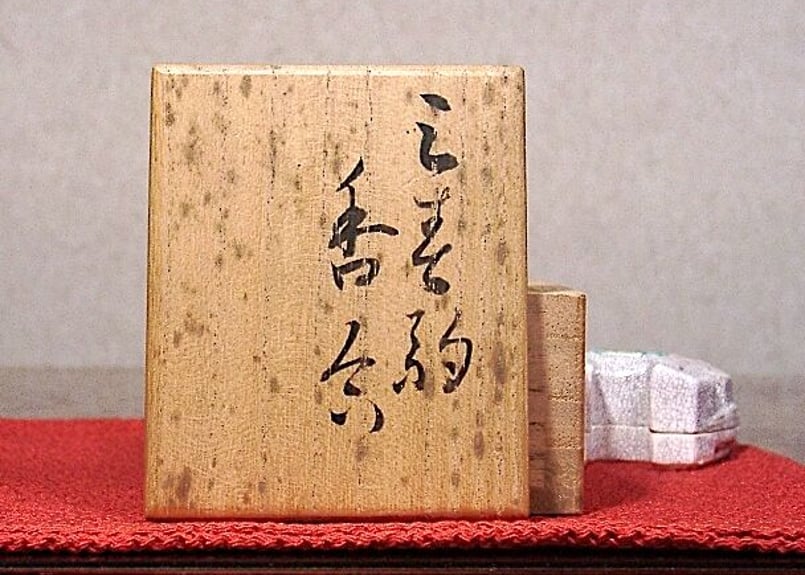 三春駒
香合